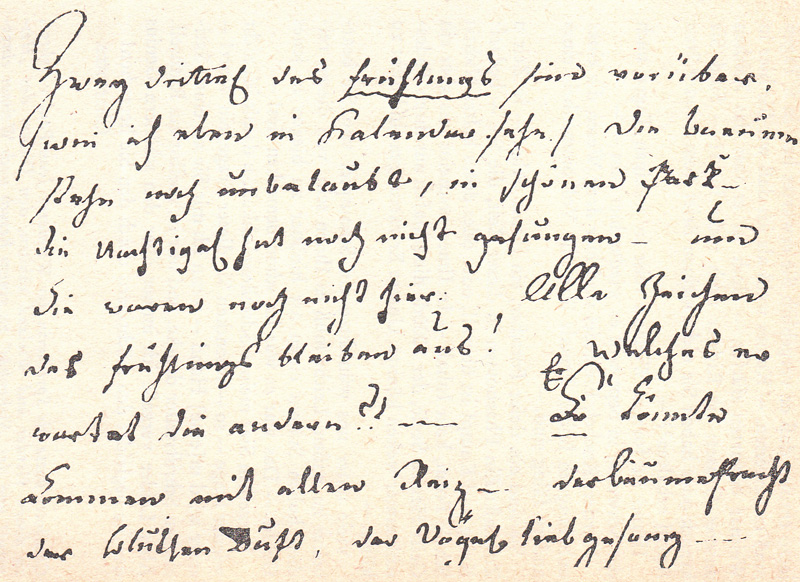 Zwey drittel des frühlings sind vorüber,
/wie ich eben in Kalender sehe./ die baeume
stehn noch unbelaubt, in schönen Park –
die Nachtigal hat noch nicht gesungen – und
Sie waren noch nicht hier. Alle Zeichen
des frühlings bleiben aus! Welches er
wartet die andern?! — Er könnte
kommen mit allen Reiz – der bäume pracht
der blüthen Duft, der Vögel liebgesang —